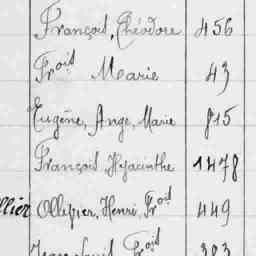 François, Théodore 456
Frois Marie 43
Eugène, Ange, Marie 815
François Hyacinthe 1478
llier Ollivier, Henri, Frois 449
Jean Louis Frois 383